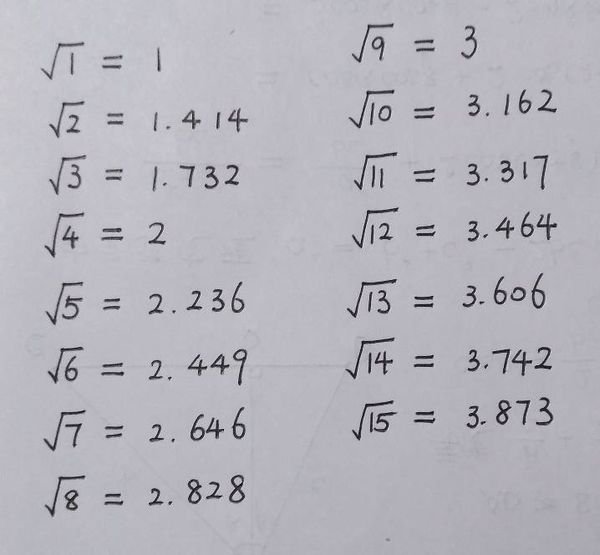 √1 = 1
√2 = 1.414
√3 = 1.732
√4 = 2
√5 = 2.236
√6 = 2.449
√7 = 2.646
√8 = 2.828
√9 = 3
√10 = 3.162
√11 = 3.317
√12 = 3.464
√13 = 3.606
√14 = 3.742
√15 = 3.873